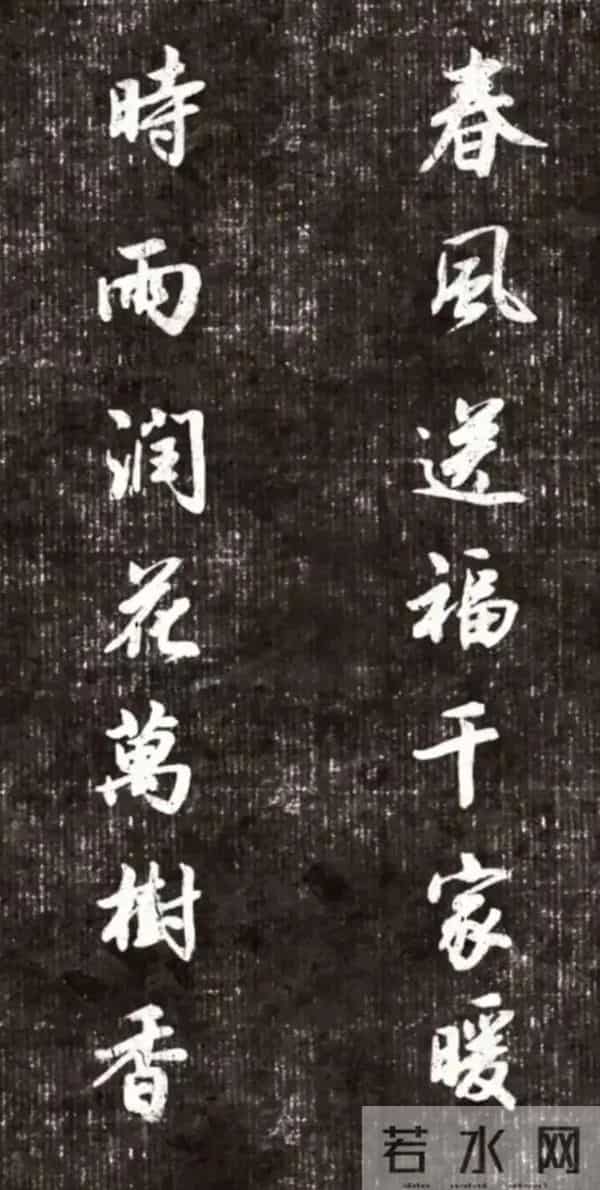 春風送福千家暖
時雨润花萬樹香
若水网